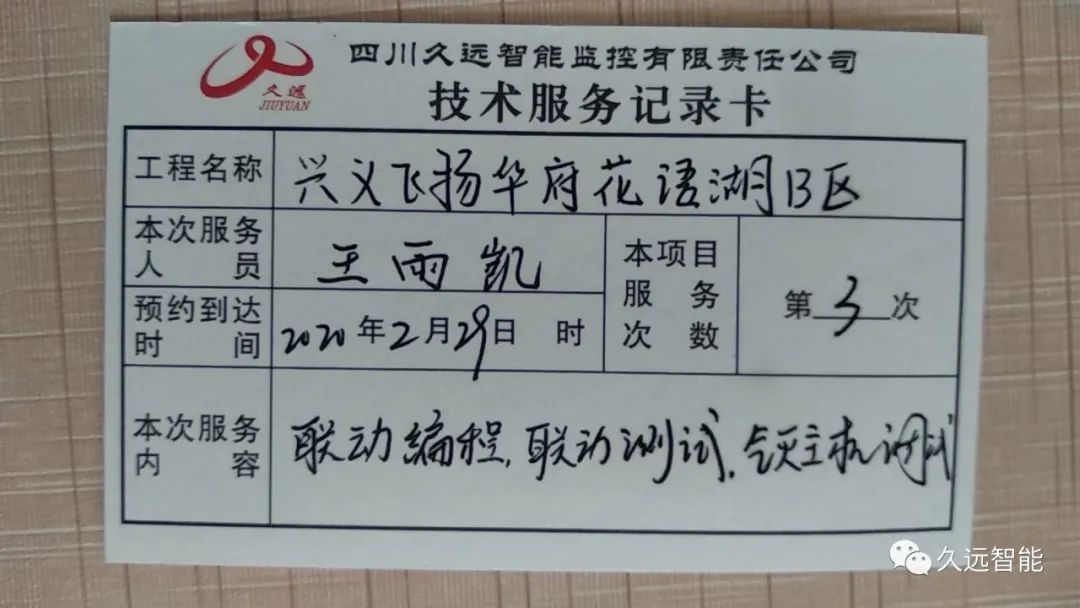 久远
JIUYUAN
四川久远智能监控有限责任公司
技术服务记录卡
工程名称 兴义飞扬华府花语湖B区
本次服务人员 王雨凯
本项目服务次数 第3次
预约到达时间 2020年2月29日 时
本次服务内容 联动编程,联动测试,气灭主机调试
久远智能